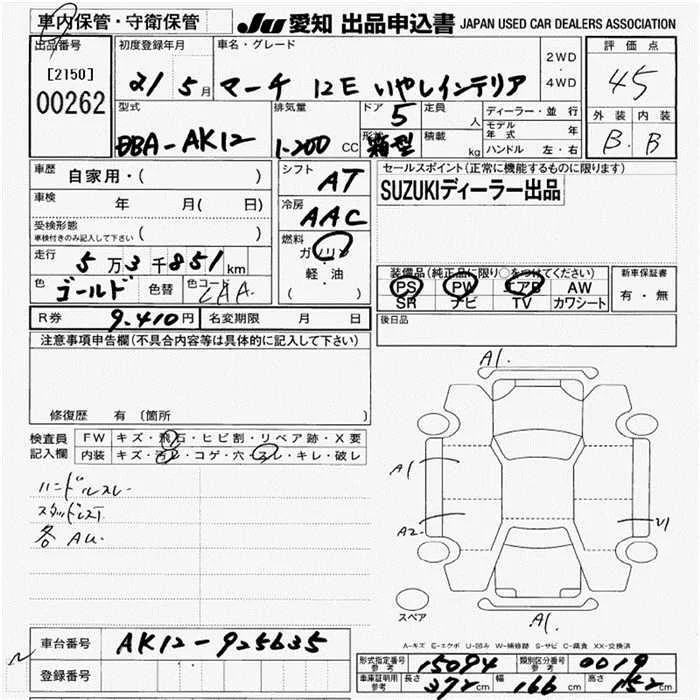 車内保管・守衛保管
JU 愛知 出品申込書 JAPAN USED CAR DEALERS ASSOCIATION
出品番号
[2150]
00262
初度登録年月
21 年 5 月
車名・グレード
マーチ 12E いやしインテリア
2WD
・
4WD
評価点
45
外装 内装
B B
型式
DBA-AK12
排気量
1-200 CC
ドア 5
形状 箱型
定員 人
積載 kg
ディーラー・並行
モデル年式 年
ハンドル 左・右
車歴 自家用・( )
車検 年 月( 日)
受検形態
車検付きのみ記入して下さい ( )
走行 5 万 3 千 851 km
色 ゴールド 色替 色コード CAA
シフト AT
冷房 AAC
燃料
ガソリン
軽・油
( )
セールスポイント(正常に機能するものに限ります)
SUZUKIディーラー出品
装備品(純正品に限り○をつけてください)
PS PW エアB AW
SR ナビ TV カワシート
新車保証書
有・無
後日品
R券 9.410円 名変期限 月 日
注意事項申告欄(不具合内容等は具体的に記入して下さい)
修復歴 有 〔箇所 〕
検査員記入欄
FW キズ・飛石・ヒビ割・リペア跡・X要
内装 キズ・汚レ・コゲ・穴・スレ・キレ・破レ
ハンドルスレ
スタッドレス
各 AU.
A1.
A1
A2
U1
A1.
スペア
A-キズ E-エクボ U-凹み W-補修跡 S-サビ C-腐食 XX-交換済
車台番号 AK12-925635
登録番号
形式指定番号 参考 15094 類別区分番号 参考 0019
車庫証明用 参考 長さ 372cm 幅 166cm 高さ 152cm